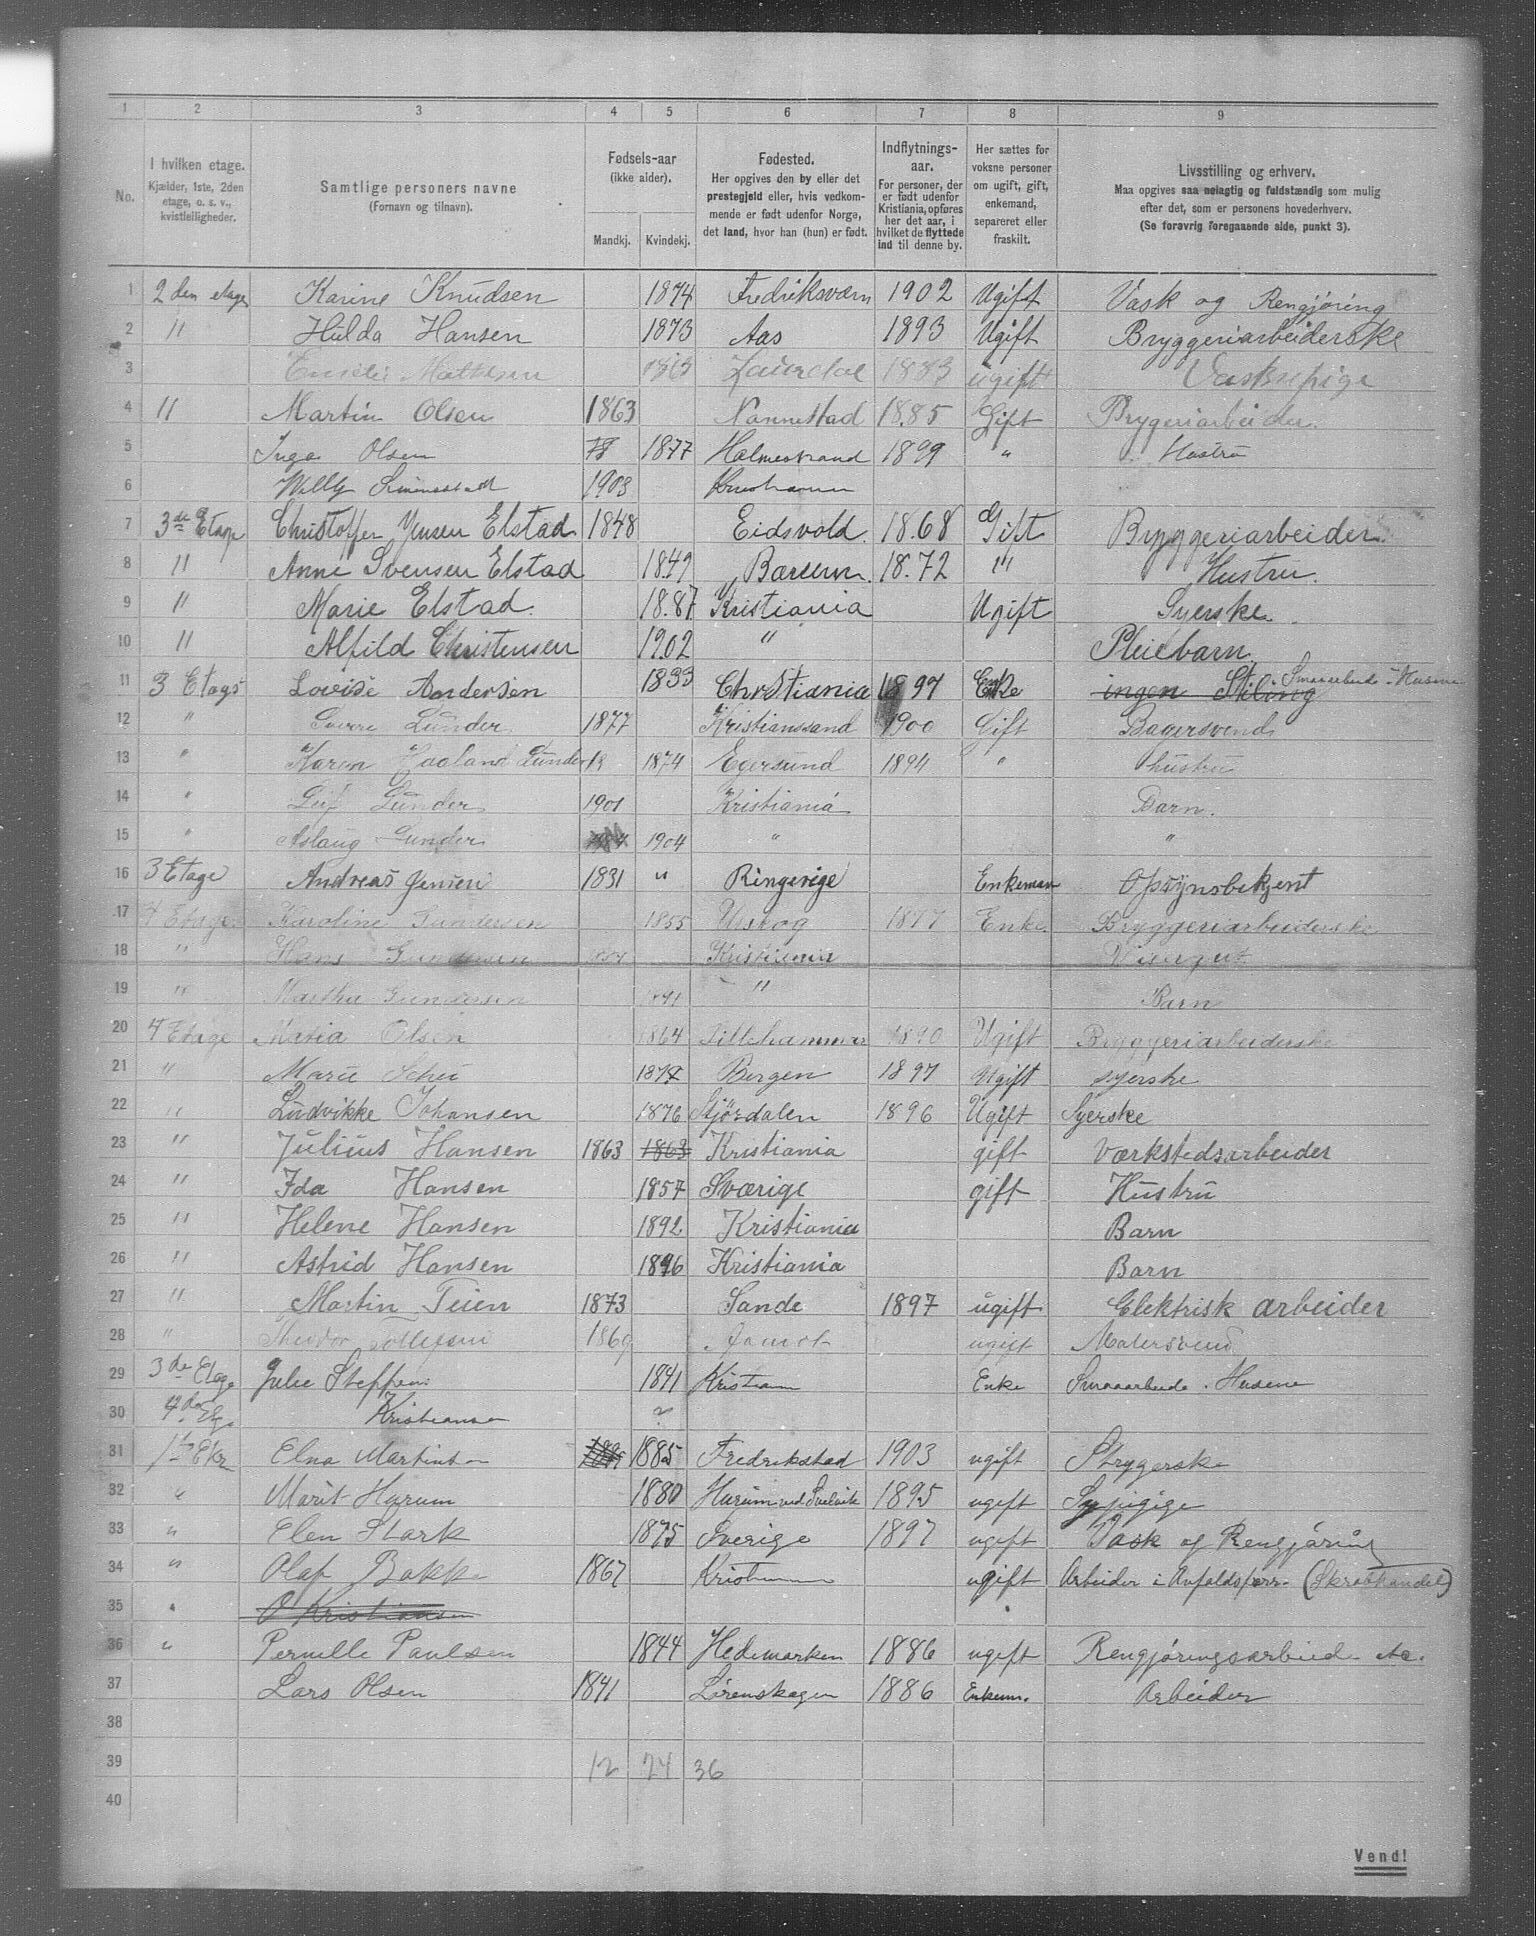 1 2 3 4 5 6 7 8 9
No.
I hvilken etage.
Kjælder, 1ste, 2den
etage, o. s. v.,
kvistleiligheder.
Samtlige personers navne
(Fornavn og tilnavn).
Fødsels-aar
(ikke alder).
Mandkj. Kvindekj.
Fødested.
Her opgives den by eller det
prestegjeld eller, hvis vedkom-
mende er født udenfor Norge,
det land, hvor han (hun) er født.
Indflytnings-
aar.
For personer, der
er født udenfor
Kristiania, opføres
her det aar, i
hvilket de flyttede
ind til denne by.
Her sættes for
voksne personer
om ugift, gift,
enkemand,
separeret eller
fraskilt.
Livsstilling og erhverv.
Maa opgives saa nøiagtig og fuldstændig som mulig
efter det, som er personens hovederhverv.
(Se forøvrig foregaaende side, punkt 3).
1 2 den etage Karine Knudsen 1874 Fredriksværn 1902 Ugift Vask og Rengjøring
2 " Hulda Hansen 1873 Aas 1893 Ugift Bryggeriarbeiderske
3 Mathisen Laurdal 1883 ugift Vaskepige
4 " Martin Olsen 1863 Nannestad 1885 Gift Bryggeriarbeider
5 Inga Olsen 1877 Holmestrand 1899 " Hustru
6 Willy 1903 Kristiania
7 3de Etage Christoffer Jensen Elstad 1848 Eidsvold 1868 Gift Bryggeriarbeider
8 " Anne Svensen Elstad 1849 Bærum 1872 " Hustru.
9 " Marie Elstad. 1887 Kristiania Ugift Syerske
10 " Alfild Christensen 1902 " Pleiebarn
11 3 Etags Lovise Andersen 1833 Christiania 1897 Enke ingen Stiling Smaaarbeide i Husene
12 " Sverre Lunder 1877 Kristianssand 1900 Gift Bagersvend
13 " Karen Haaland Lunder 1874 Egersund 1894 " hustru
14 " Leif Lunder 1901 Kristiania Barn.
15 " Aslaug Lunder 1904 " "
16 3 Etage Andreas Jensen 1831 " Ringerige Enkeman Opsynsbetjent
17 4 Etage Karoline Gundersen 1855 Urskog 1877 Enke. Bryggeriarbeiderske
18 " Hans Gundersen Kristiania Visergut
19 " Martha Gundersen 1891 " Barn
20 4 Etage Maria Olsen 1864 Lillehammer 1890 Ugift Bryggeriarbeiderske
21 " Marie 1897 Bergen Ugift syerske
22 " Ludvikke Johansen 1876 Stjørdalen 1896 Ugift Syerske
23 " Julius Hansen 1863 1863 Kristiania gift Værkstedsarbeider
24 " Ida Hansen 1857 Sværige gift Hustru
25 " Helene Hansen 1892 Kristiania Barn
26 " Astrid Hansen 1896 Kristiania Barn
27 " Martin Teien 1873 Sande 1897 ugift Elektrisk arbeider
28 " Theodor Tollefsen 1869 ugift Malersvend
29 3de Etage Julie Steffen 1841 Kristiania Enke Smaaarbeide i Husene
30 4de Etg Kristiansen ?
31 1ste Etg Elna Martinsen 1885 Fredrikstad 1903 ugift Strygerske
32 " Marit Hurum 1880 Hurum ved Svelvik 1895 ugift Sypigige
33 " Elen Stark 1875 Sverige 1897 ugift Vask og Rengjøring
34 " Olaf Bakke 1867 Kristiania ugift Arbeider i Avfaldsforr. (Skrabhandel)
35 " O Kristiansen
36 " Pernille Paulsen 1844 Hedemarken 1886 ugift Rengjøringsarbeide etc.
37 Lars Olsen 1841 Lørenskogen 1886 Enkem. Arbeider
38
39 12 24 36
40
Vend!